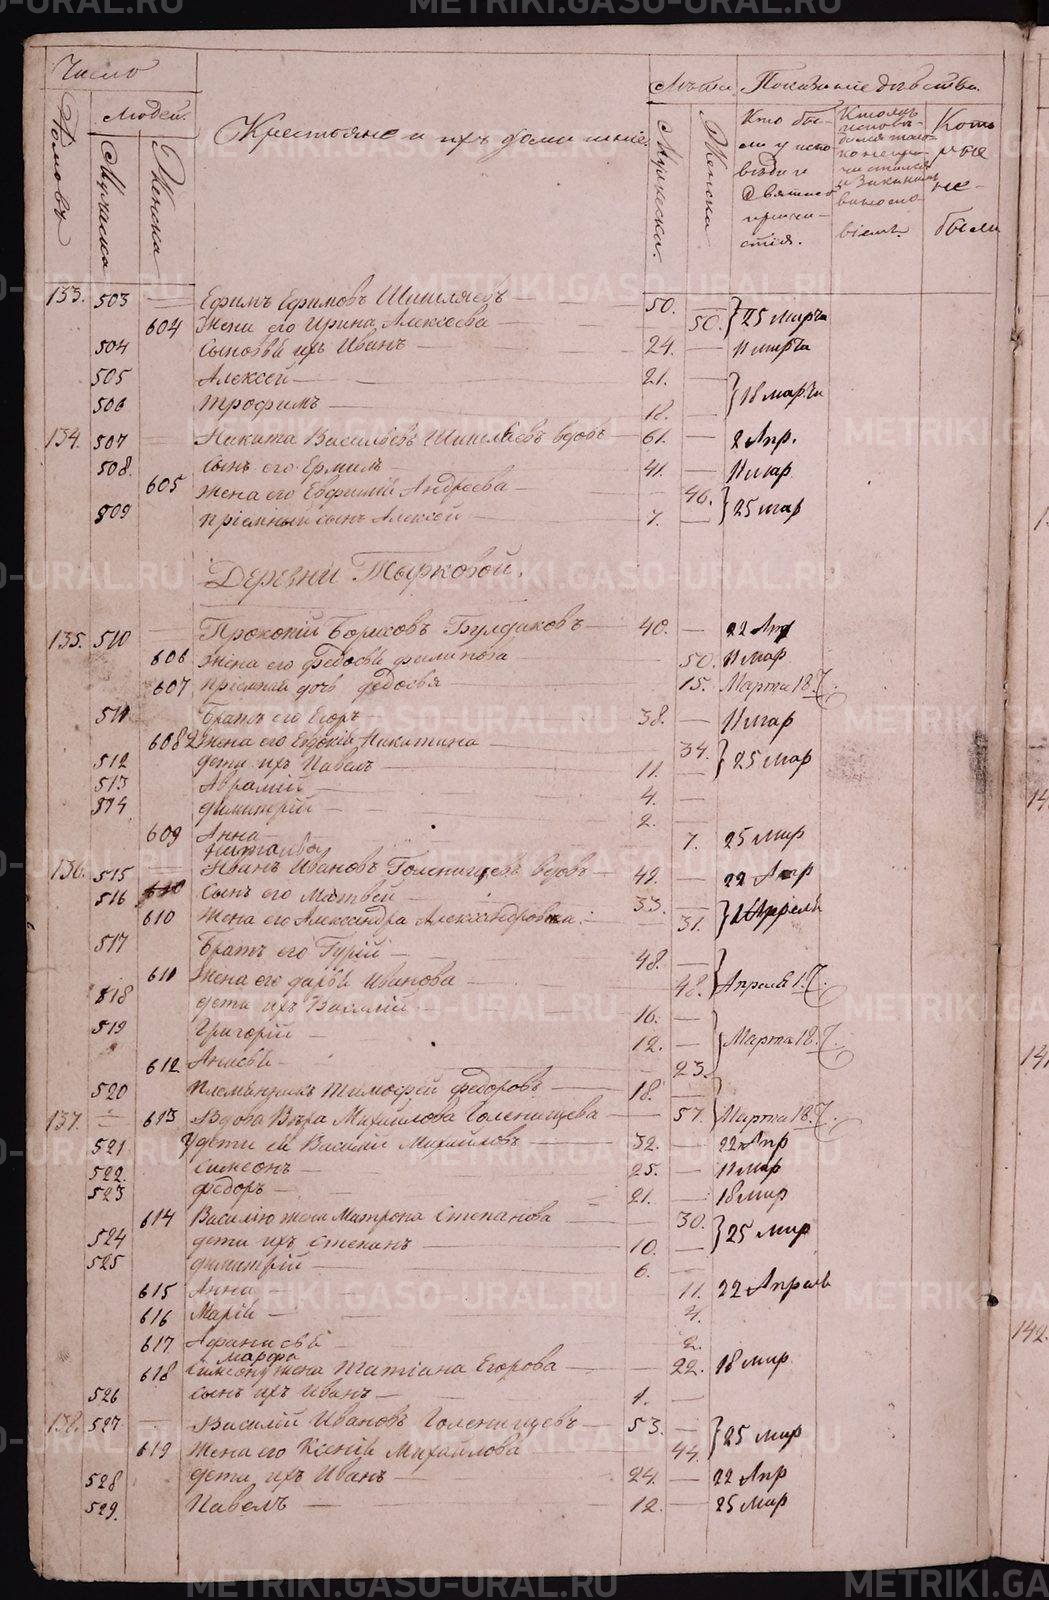 Число
Лѣта Показаніе дѣйства.
Домовъ
Людей.
Мужеска
Женска
Крестьяне и ихъ домашніе.
Мужеска.
Женска
Кто бы-
ли у испо
вѣди и
Святаго
прича-
стія.
Кто
испове
вѣсили.
Кото
рые
не
были
133. 503 — Ефимъ Ефимовъ Шишляевъ — 50.
604 Жена его Ирина Алексѣева — 50. } 25 Марта
504 Сыновья ихъ Иванъ — 24. — 11 марта
505 Алексей — 21. —
506 Трофимъ — 18. — } 18 марта
134. 507 — Никита Васильевъ Шишляевъ вдовъ — 61. — 2 Апр.
508. Сынъ его Ермилъ — 41. — 11 мар
605 Жена его Евфимія Андреева — 46.
509 пріемный сынъ Алексей — 7. — } 25 мар
Деревни Тырковой.
135. 510 — Прокопій Борисовъ Булдаковъ — 40. — 22 Апр
606 Жена его Федосья Филипова — 50. 11 мар
607 пріемная дочь Федосья — 15. Марта 18.
511 Братъ его Егоръ — 38. — 11 мар
608 Жена его Евдокія Никитина — 34.
512 дети ихъ Павелъ — 11. — } 25 мар
513 Авраамій — 4. —
514 Димитрій — 2. —
609 Анна — 7. 25 мар
136. 515 — Иванъ Ивановъ Голенищевъ вдовъ — 42. — 22 Апр
516 Сынъ его Матвей — 33. —
610 Жена его Александра Александровна. — 31. } Апреля
517 Братъ его Гурій — 48. —
611 Жена его Дарья Иванова — 48. } Апреля 1.
518 дети ихъ Василій — 16. —
519 Григорій — 12. — } Марта 18.
612 Анисья — 23.
520 Племянникъ Тимофей Федоровъ — 18. —
137. — 613 Вдова Вѣра Михайлова Голенищева — 57. } Марта 18.
521 дети ея Василій Михайловъ — 32. — 22 Апр
522. Симеонъ — 25. — 11 мар
523 Федоръ — 21. — 18 мар
614 Василію жена Матрона Степанова — 30.
524 дети ихъ Степанъ — 10. — } 25 мар
525 Димитрій — 6. —
615 Анна — 11. 22 Апреля
616 Марія — 4.
617 Афанасья 2.
Марфа
618 Симеону жена Татіана Егорова — 22. 18 мар
526 сынъ ихъ Иванъ — 1. —
138. 527 — Василій Ивановъ Голенищевъ — 53. —
619 Жена его Ксенія Михайлова — 44. } 25 мар
528 дети ихъ Иванъ — 24. — 22 Апр
529. Павелъ — 12. — 25 мар
METRIKI.GASO-URAL.RU